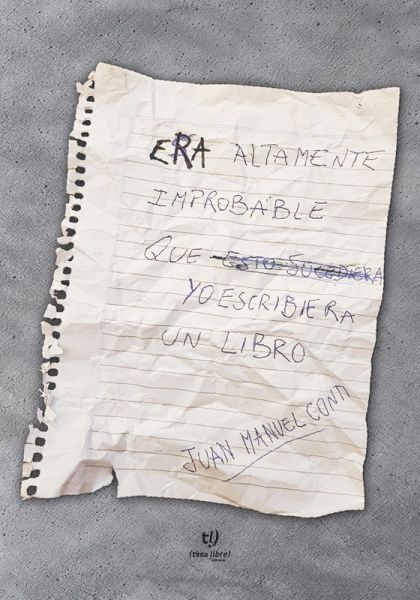 ERA ALTAMENTE
IMPROBABLE
QUE ESTO SUCEDIERA
YO ESCRIBIERA
UN LIBRO
JUAN MANUEL CONTI
tl)
(tinta libre)